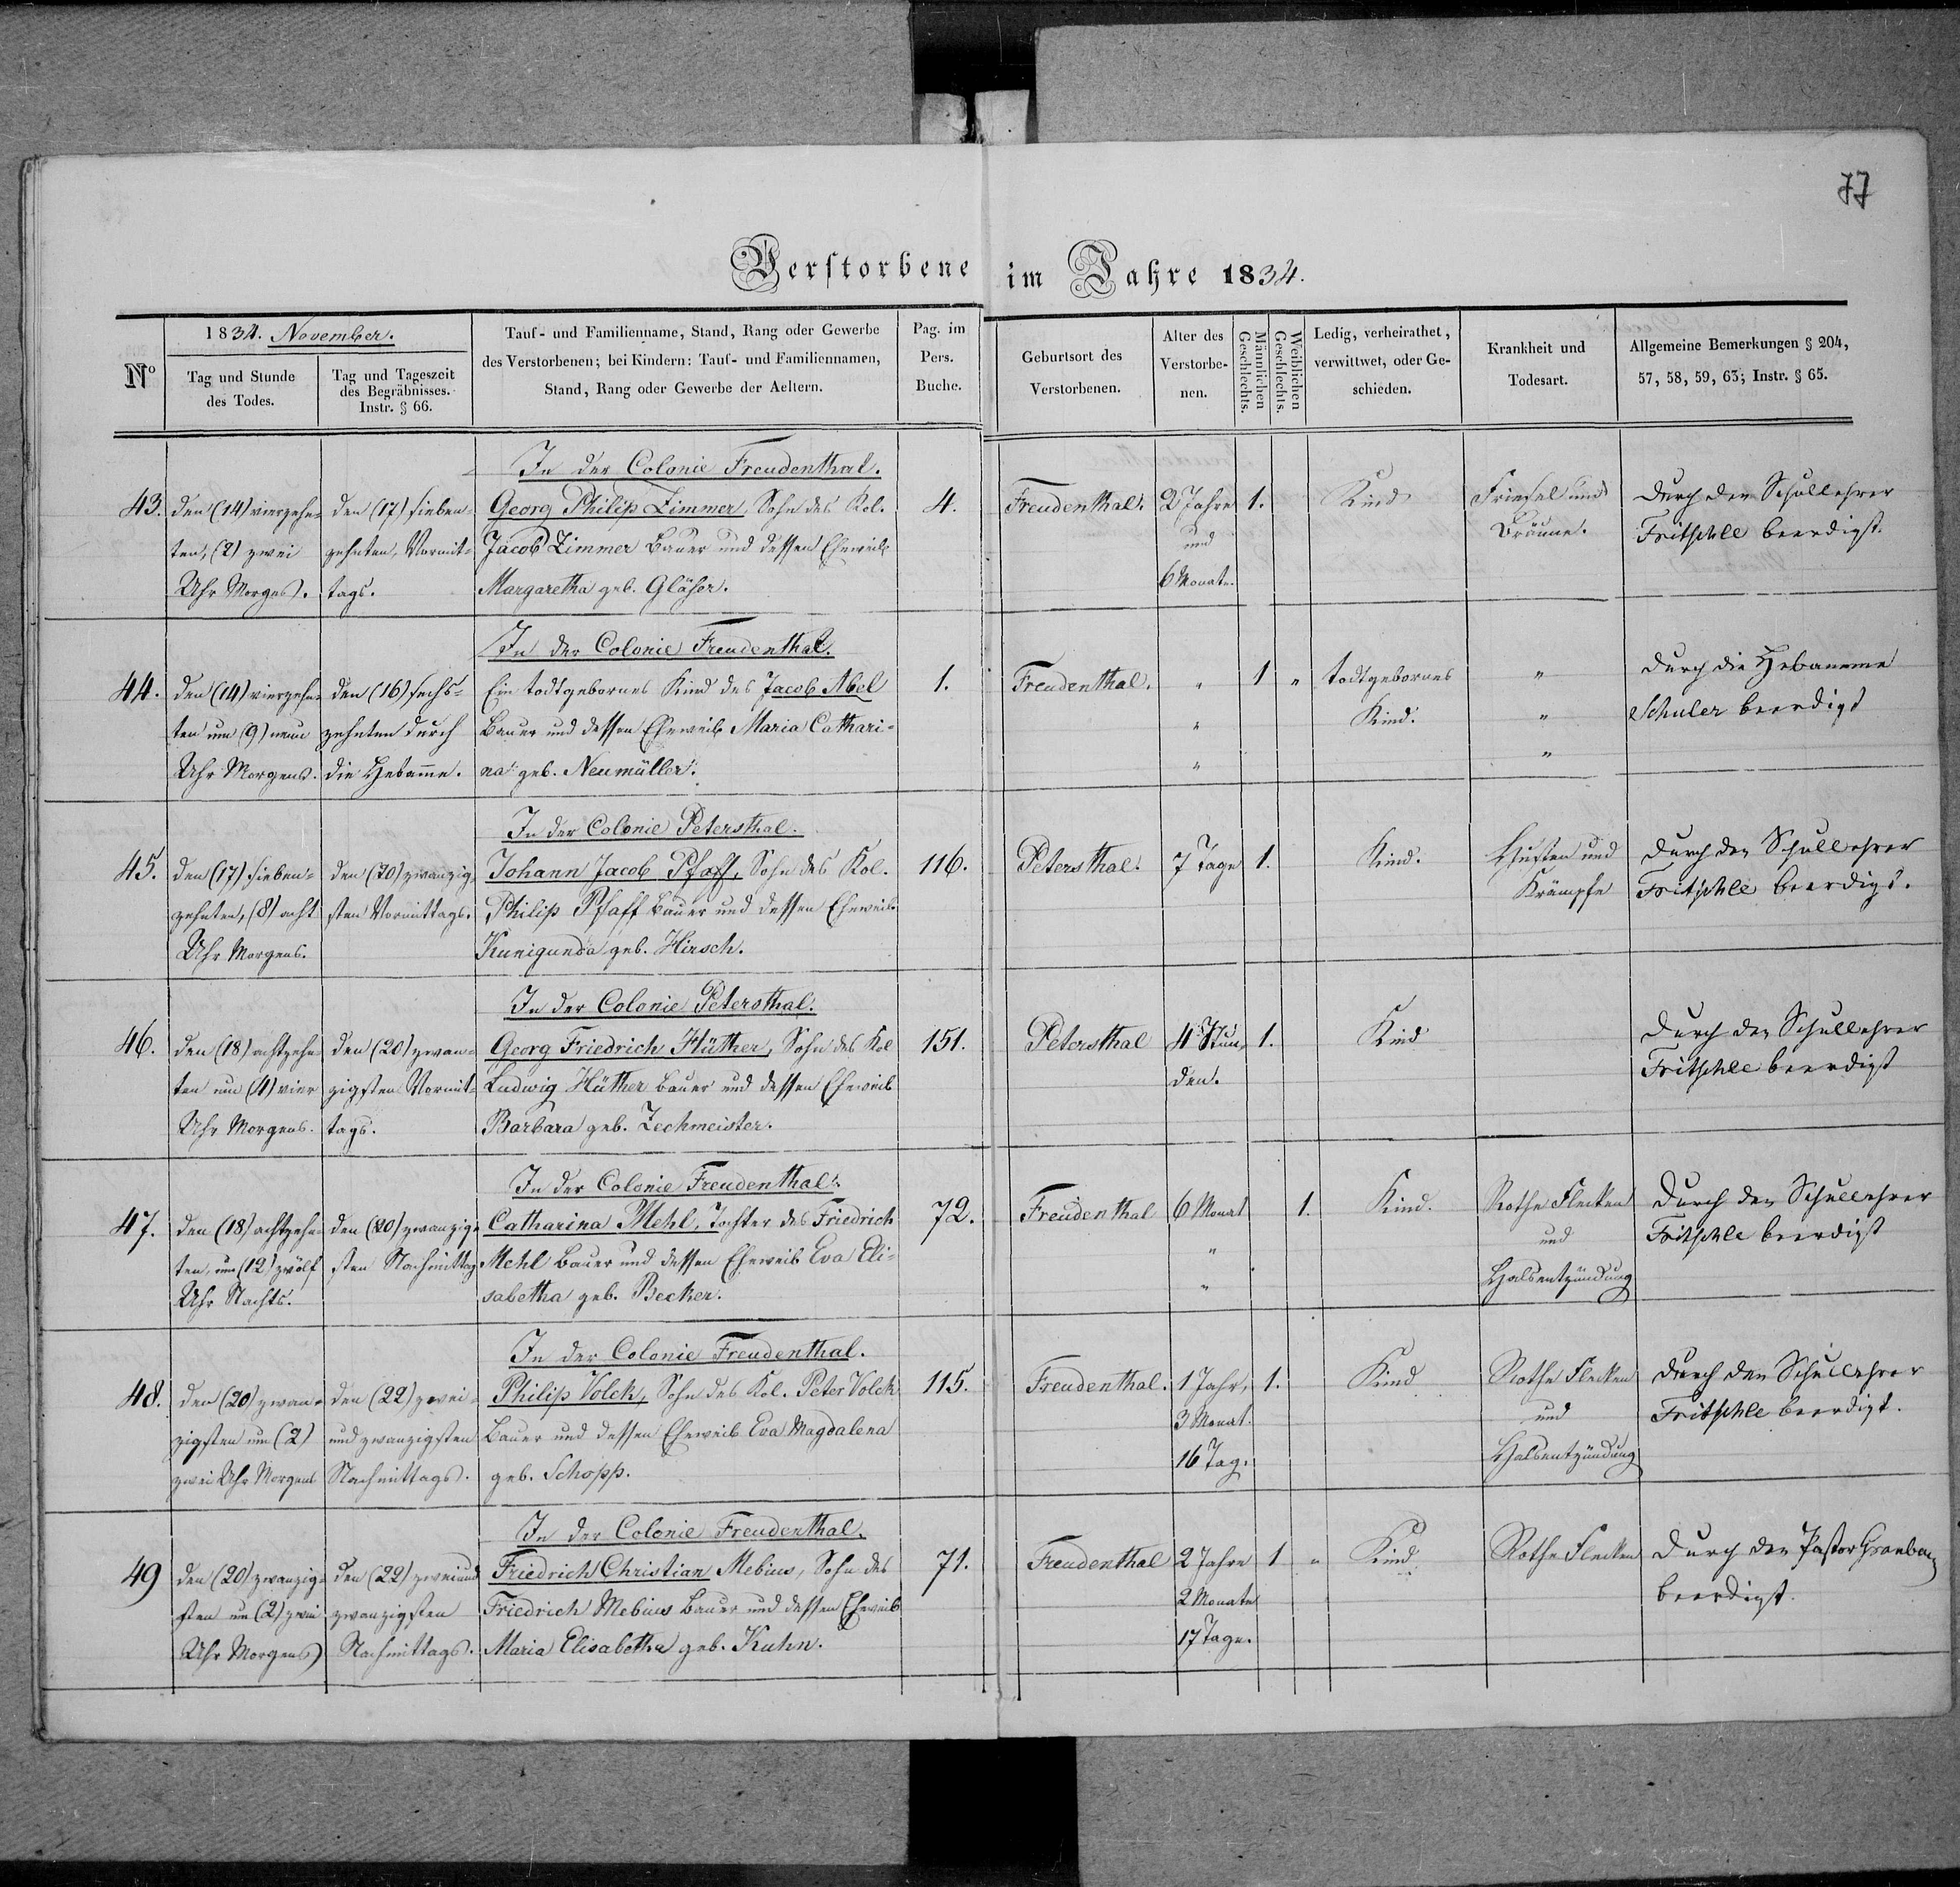 77
Verstorbene im Jahre 1834.
No
1834. November.
Tag und Stunde
des Todes.
Tag und Tageszeit
des Begräbnisses.
Instr. § 66.
Tauf- und Familienname, Stand, Rang oder Gewerbe
des Verstorbenen; bei Kindern: Tauf- und Familiennamen,
Stand, Rang oder Gewerbe der Aeltern.
Pag. im
Pers.
Buche.
Geburtsort des
Verstorbenen.
Alter des
Verstorbe-
nen.
Männlichen
Geschlechts.
Weiblichen
Geschlechts.
Ledig, verheirathet,
verwittwet, oder Ge-
schieden.
Krankheit und
Todesart.
Allgemeine Bemerkungen § 204,
57, 58, 59, 63; Instr. § 65.
43.
den (14) vierzehn-
ten, (2) zwei
Uhr Morges.
den (17) sieben-
zehnten, Vormit-
tags.
In der Colonie Freudenthal.
Georg Philip Zimmer, Sohn des Kol.
Jacob Zimmer Bauer und dessen Eheweib
Margaretha geb. Gläser.
4.
Freudenthal.
2 Jahre
und
6 Monate.
1.
Kind
Friesel und
Bräune.
Durch den Schullehrer
Fritschle beerdigt.
44.
den (14) vierzehn-
ten um (9) neun
Uhr Morgens.
den (16) sechs-
zehnten durch
die Hebamme.
In der Colonie Freudenthal.
Ein todtgebornes Kind des Jacob Abel
Bauer und dessen Eheweib Maria Cathari-
na geb. Neumüller.
1.
Freudenthal.
"
"
"
1
"
todtgebornes
Kind.
"
"
"
Durch die Hebamme
Schuler beerdigt
45.
den (17) sieben-
zehnten, (8) acht
Uhr Morgens.
den (20) zwanzig-
sten Vormittags.
In der Colonie Petersthal.
Johann Jacob Pfaff, Sohn des Kol.
Philip Pfaff Bauer und dessen Eheweib
Kunigunda geb. Hirsch.
116.
Petersthal.
7 Tage
1.
Kind.
Husten und
Krämpfe
Durch den Schullehrer
Fritschle beerdigt.
46.
den (18) achtzehn-
ten um (4) vier
Uhr Morgens.
den (20) zwan-
zigsten Vormit-
tags.
In der Colonie Petersthal.
Georg Friedrich Hüther, Sohn des Kol
Ludwig Hüther Bauer und dessen Eheweib
Barbara geb. Zechmeister.
151.
Petersthal
4 Stun-
den.
1.
Kind
Durch den Schullehrer
Fritschle beerdigt
47.
den (18) achtzehn-
ten, um (12) zwölf
Uhr Nachts.
den (20) zwanzig-
sten Nachmittag
In der Colonie Freudenthal.
Catharina Mehl, Tochter des Friedrich
Mehl Bauer und dessen Eheweib Eva Eli-
sabetha geb. Becker.
72.
Freudenthal
6 Monat
"
"
1.
Kind.
Rothe Flecken
und
Halsentzündung
Durch den Schullehrer
Fritschle beerdigt
48.
den (20) zwan-
zigsten um (2)
zwei Uhr Morgens
den (22) zwei-
und zwanzigsten
Nachmittags.
In der Colonie Freudenthal.
Philip Volck, Sohn des Kol. Peter Volck
Bauer und dessen Eheweib Eva Magdalena
geb. Schopp.
115.
Freudenthal.
1 Jahr,
3 Monat.
16 Tag.
1.
Kind
Rothe Flecken
und
Halsentzündung
Durch den Schullehrer
Fritschle beerdigt.
49
den (20) zwanzig-
sten um (2) zwei
Uhr Morgens
den (22) zweiund
zwanzigsten
Nachmittags.
In der Colonie Freudenthal.
Friedrich Christian Mebius, Sohn des
Friedrich Mebius Bauer und dessen Eheweib
Maria Elisabetha geb. Kuhn.
71.
Freudenthal
2 Jahre
2 Monate
17 Tage.
1
"
Kind
Rothe Flecken
Durch den Pastor
beerdigt.